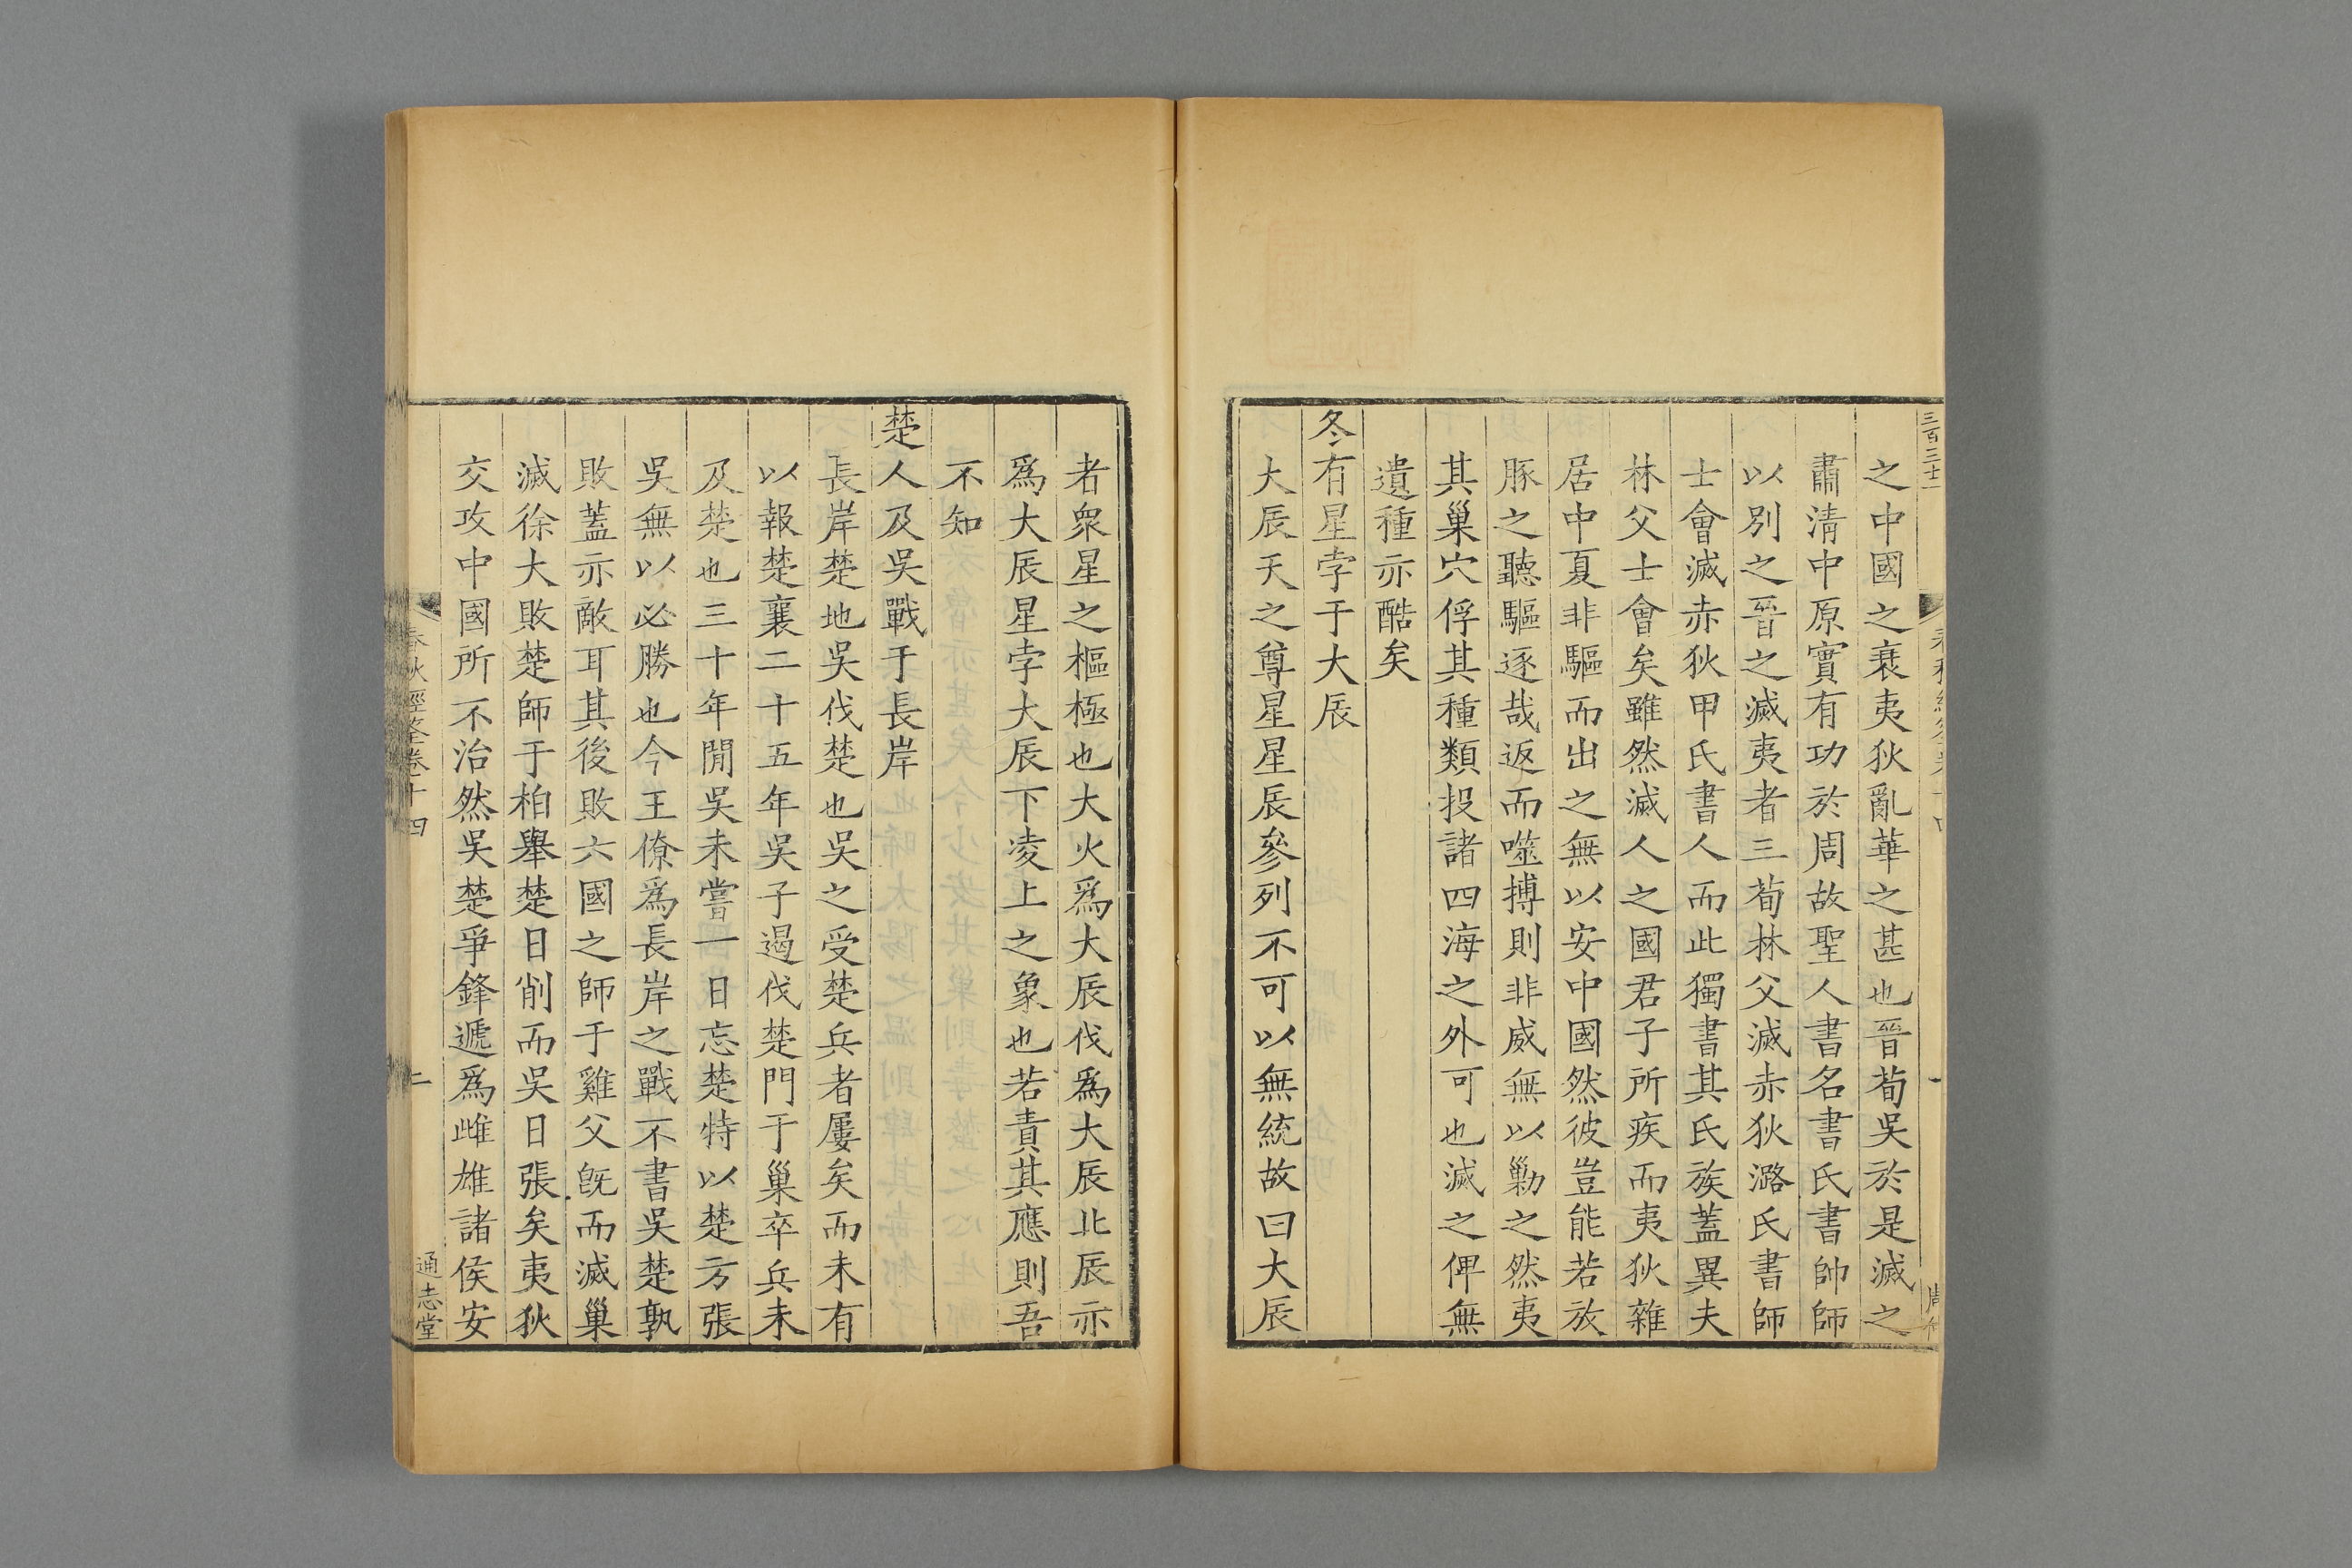 三百三十一
之中國之衰夷狄亂華之甚也晉荀吳於是滅之
肅清中原實有功於周故聖人書名書氏書帥師
以別之晉之滅夷者三荀林父滅赤狄潞氏書師
士會滅赤狄甲氏書人而此獨書其氏族蓋異夫
林父士會矣雖然滅人之國君子所疾而夷狄雜
居中夏非驅而出之無以安中國然彼豈能若放
豚之聽驅逐哉返而噬搏則非威無以勦之然夷
其巢穴俘其種類投諸四海之外可也滅之俾無
遺種亦酷矣
冬有星孛于大辰
大辰天之尊星星辰參列不可以無統故曰大辰
者衆星之樞極也大火爲大辰伐爲大辰北辰亦
爲大辰星孛大辰下凌上之象也若責其應則吾
不知
楚人及吳戰于長岸
長岸楚地吳伐楚也吳之受楚兵者屢矣而未有
以報楚襄二十五年吳子遏伐楚門于巢卒兵未
及楚也三十年閒吳未嘗一日忘楚特以楚方張
吳無以必勝也今王僚爲長岸之戰不書吳楚孰
敗蓋亦敵耳其後敗六國之師于雞父旣而滅巢
滅徐大敗楚師于柏舉楚日削而吳日張矣夷狄
交攻中國所不治然吳楚爭鋒遞爲雌雄諸侯安
春秋經筌卷十四 二 通志堂